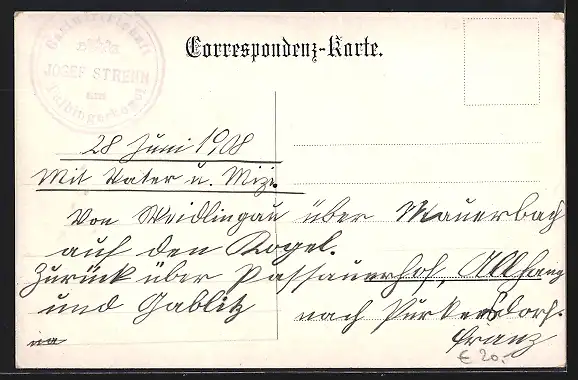 Gastwirtschaft
JOSEF STRENN
am
Tulbingerkogel
Correspondenz-Karte.
28 Juni 1908
Mit Vater u. Mizi.
Von Weidlingau über Mauerbach
auf den Kogel.
Zurück über Passauerhof, Allhang
und Gablitz nach Purkersdorf.
Franz
€ 20,-